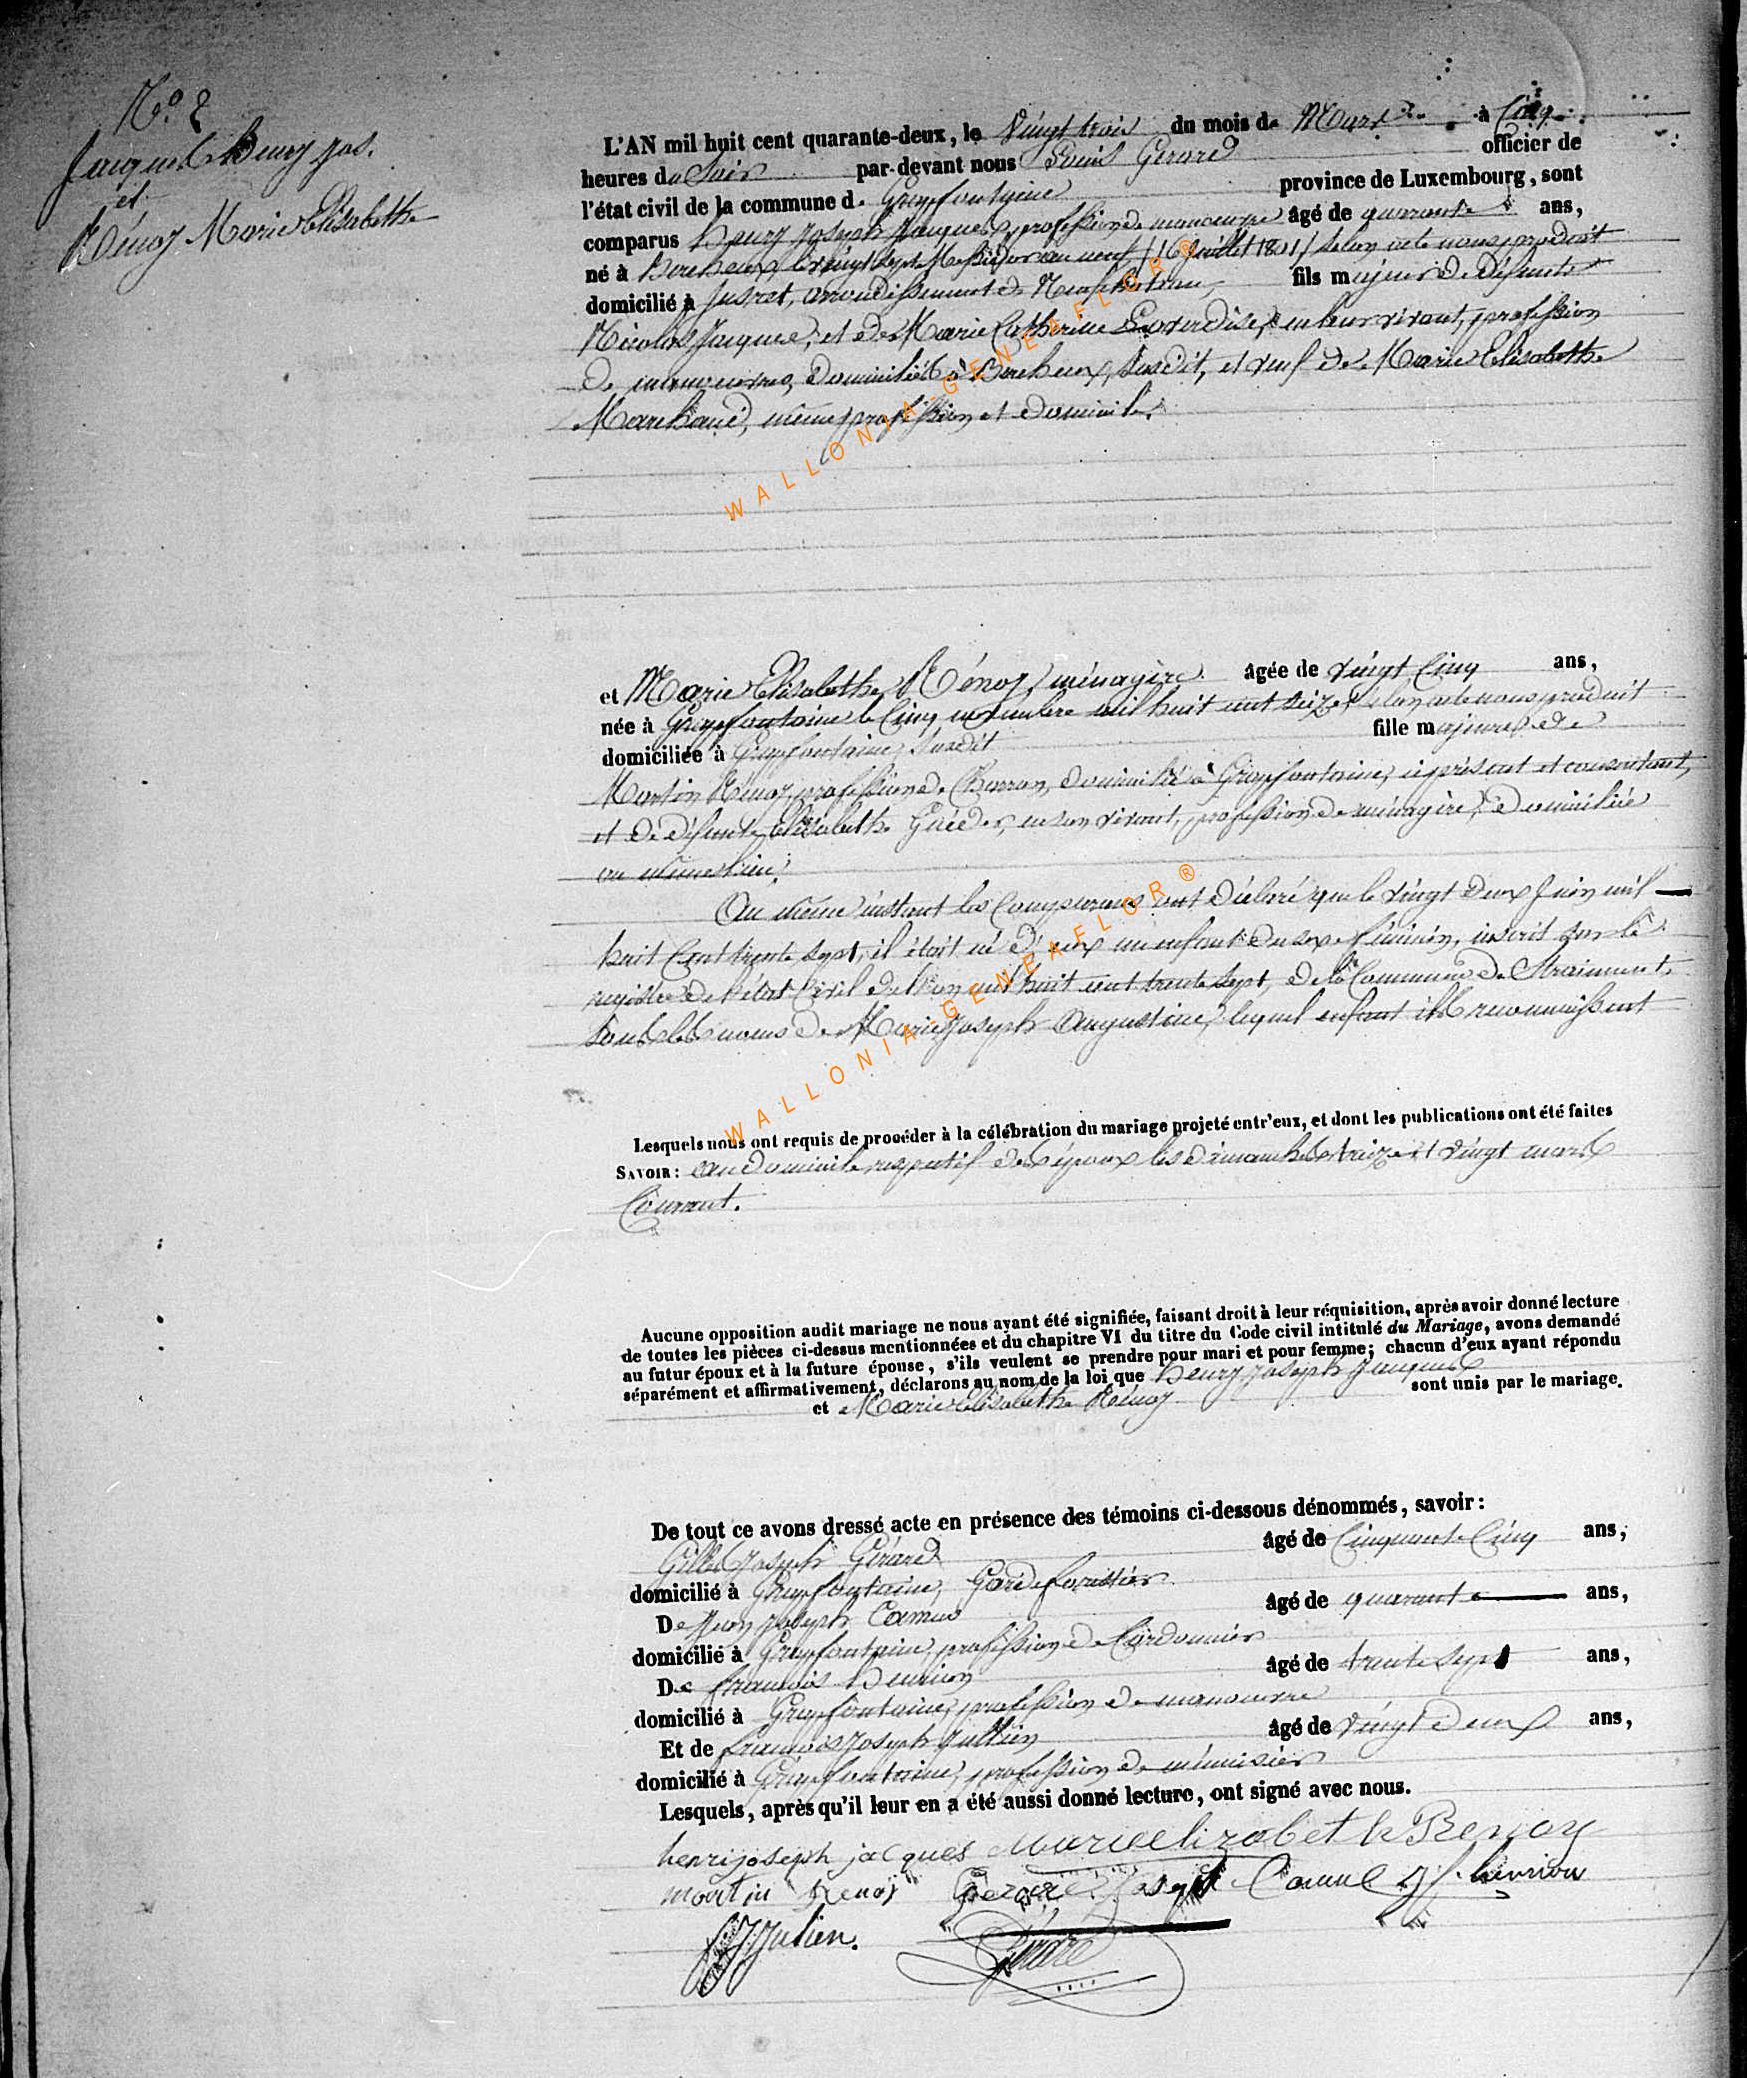 N.º 2
Jacques Henry Jos.
et
Rénoy Marie Elisabethe
L'AN mil huit cent quarante-deux, le vingt trois du mois de Mars à Cinq
heures du Soir par-devant nous Louis Gerard officier de
l'état civil de la commune de Grapfontaine province de Luxembourg, sont
comparus Henry Joseph Jacques, profession de manoeuvre âgé de quarante ans,
né à Bercheux, le vingt sept Messidor an neuf (16 Juillet 1801) selon acte nous produit
domicilié à Juseret, arrondissement de Neufchateau, fils majeur de défunts
Nicolas Jacques, et de Marie Catherine en leur vivant, profession
de manoeuvres, domiciliés à Bercheux, susdit, et veuf de Marie Elisabethe
Marchand, même profession et domicile.
et Marie Elisabethe Rénoy, ménagère âgée de vingt Cinq ans,
née à Grapfontaine le Cinq novembre mil huit cent seize, selon acte nous produit
domiciliée à Grapfontaine susdit fille majeure de
Martin Rénoy, profession de Charron, domicilié à Grapfontaine, ci présent et consentant,
et de défunte Elisabethe en son vivant, profession de ménagère, domiciliée
au même lieu.
Au même instant les Comparans ont déclaré que le vingt deux Juin mil
huit Cent trente sept, il était né d'eux un enfant du sexe féminin, inscrit sur le
registre de l'état Civil de l'an mil huit cent trente sept, de la Commune de Straimont,
sous les noms de Marie Joseph Augustine, lequel enfant ils reconnaissent
Lesquels nous ont requis de procéder à la célébration du mariage projeté entr'eux, et dont les publications ont été faites
SAVOIR: au domicile respectif des époux les dimanches treize et vingt mars
Courant.
Aucune opposition audit mariage ne nous ayant été signifiée, faisant droit à leur réquisition, après avoir donné lecture
de toutes les pièces ci-dessus mentionnées et du chapitre VI du titre du Code civil intitulé du Mariage, avons demandé
au futur époux et à la future épouse, s'ils veulent se prendre pour mari et pour femme; chacun d'eux ayant répondu
séparément et affirmativement, déclarons au nom de la loi que Henry Joseph Jacques
et Marie Elisabethe Rénoy sont unis par le mariage.
De tout ce avons dressé acte en présence des témoins ci-dessous dénommés, savoir:
Gilles Joseph Gérard âgé de Cinquante Cinq ans,
domicilié à Grapfontaine, Garde forestier
De Jean Joseph Camus âgé de quarante ans,
domicilié à Grapfontaine, profession de Cordonnier
De François Henrion âgé de trente sept ans,
domicilié à Grapfontaine, profession de manoeuvre
Et de François Joseph Jullien âgé de vingt deux ans,
domicilié à Grapfontaine, profession de menuisier
Lesquels, après qu'il leur en a été aussi donné lecture, ont signé avec nous.
henri joseph jacques Marie elizabeth Renoy
martin Renoy Gerard Joseph Camus J f henrion
F J Julien. Gérard
WALLONIA-GENEAFLOR®
WALLONIA-GENEAFLOR®